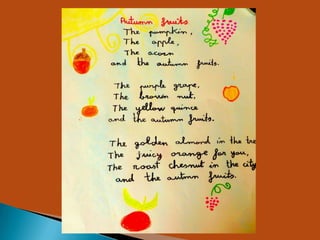 Autumn fruits
The pumpkin,
The apple,
The acorn
and the autumn fruits.
The purple grape,
The brown nut,
The yellow quince
and the autumn fruits.
The golden almond in the tre
The juicy orange for you,
The roast chesnut in the city
and the autmn fruits.